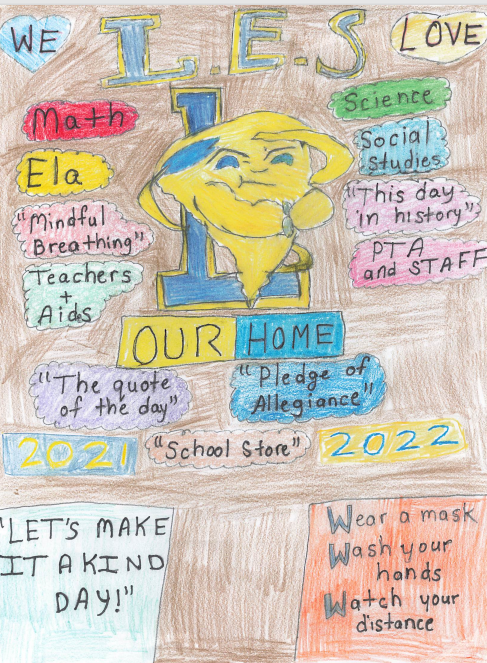 WE
L.E.S
LOVE
Math
Ela
"Mindful
Breathing"
Teachers
+
Aids
L
Science
Social
Studies
"This day
in history"
PTA
and STAFF
OUR HOME
"The quote
of the day"
"Pledge of
Allegiance"
2021
"School Store"
2022
"LET'S MAKE
IT A KIND
DAY!"
Wear a mask
Wash your
hands
Watch your
distance